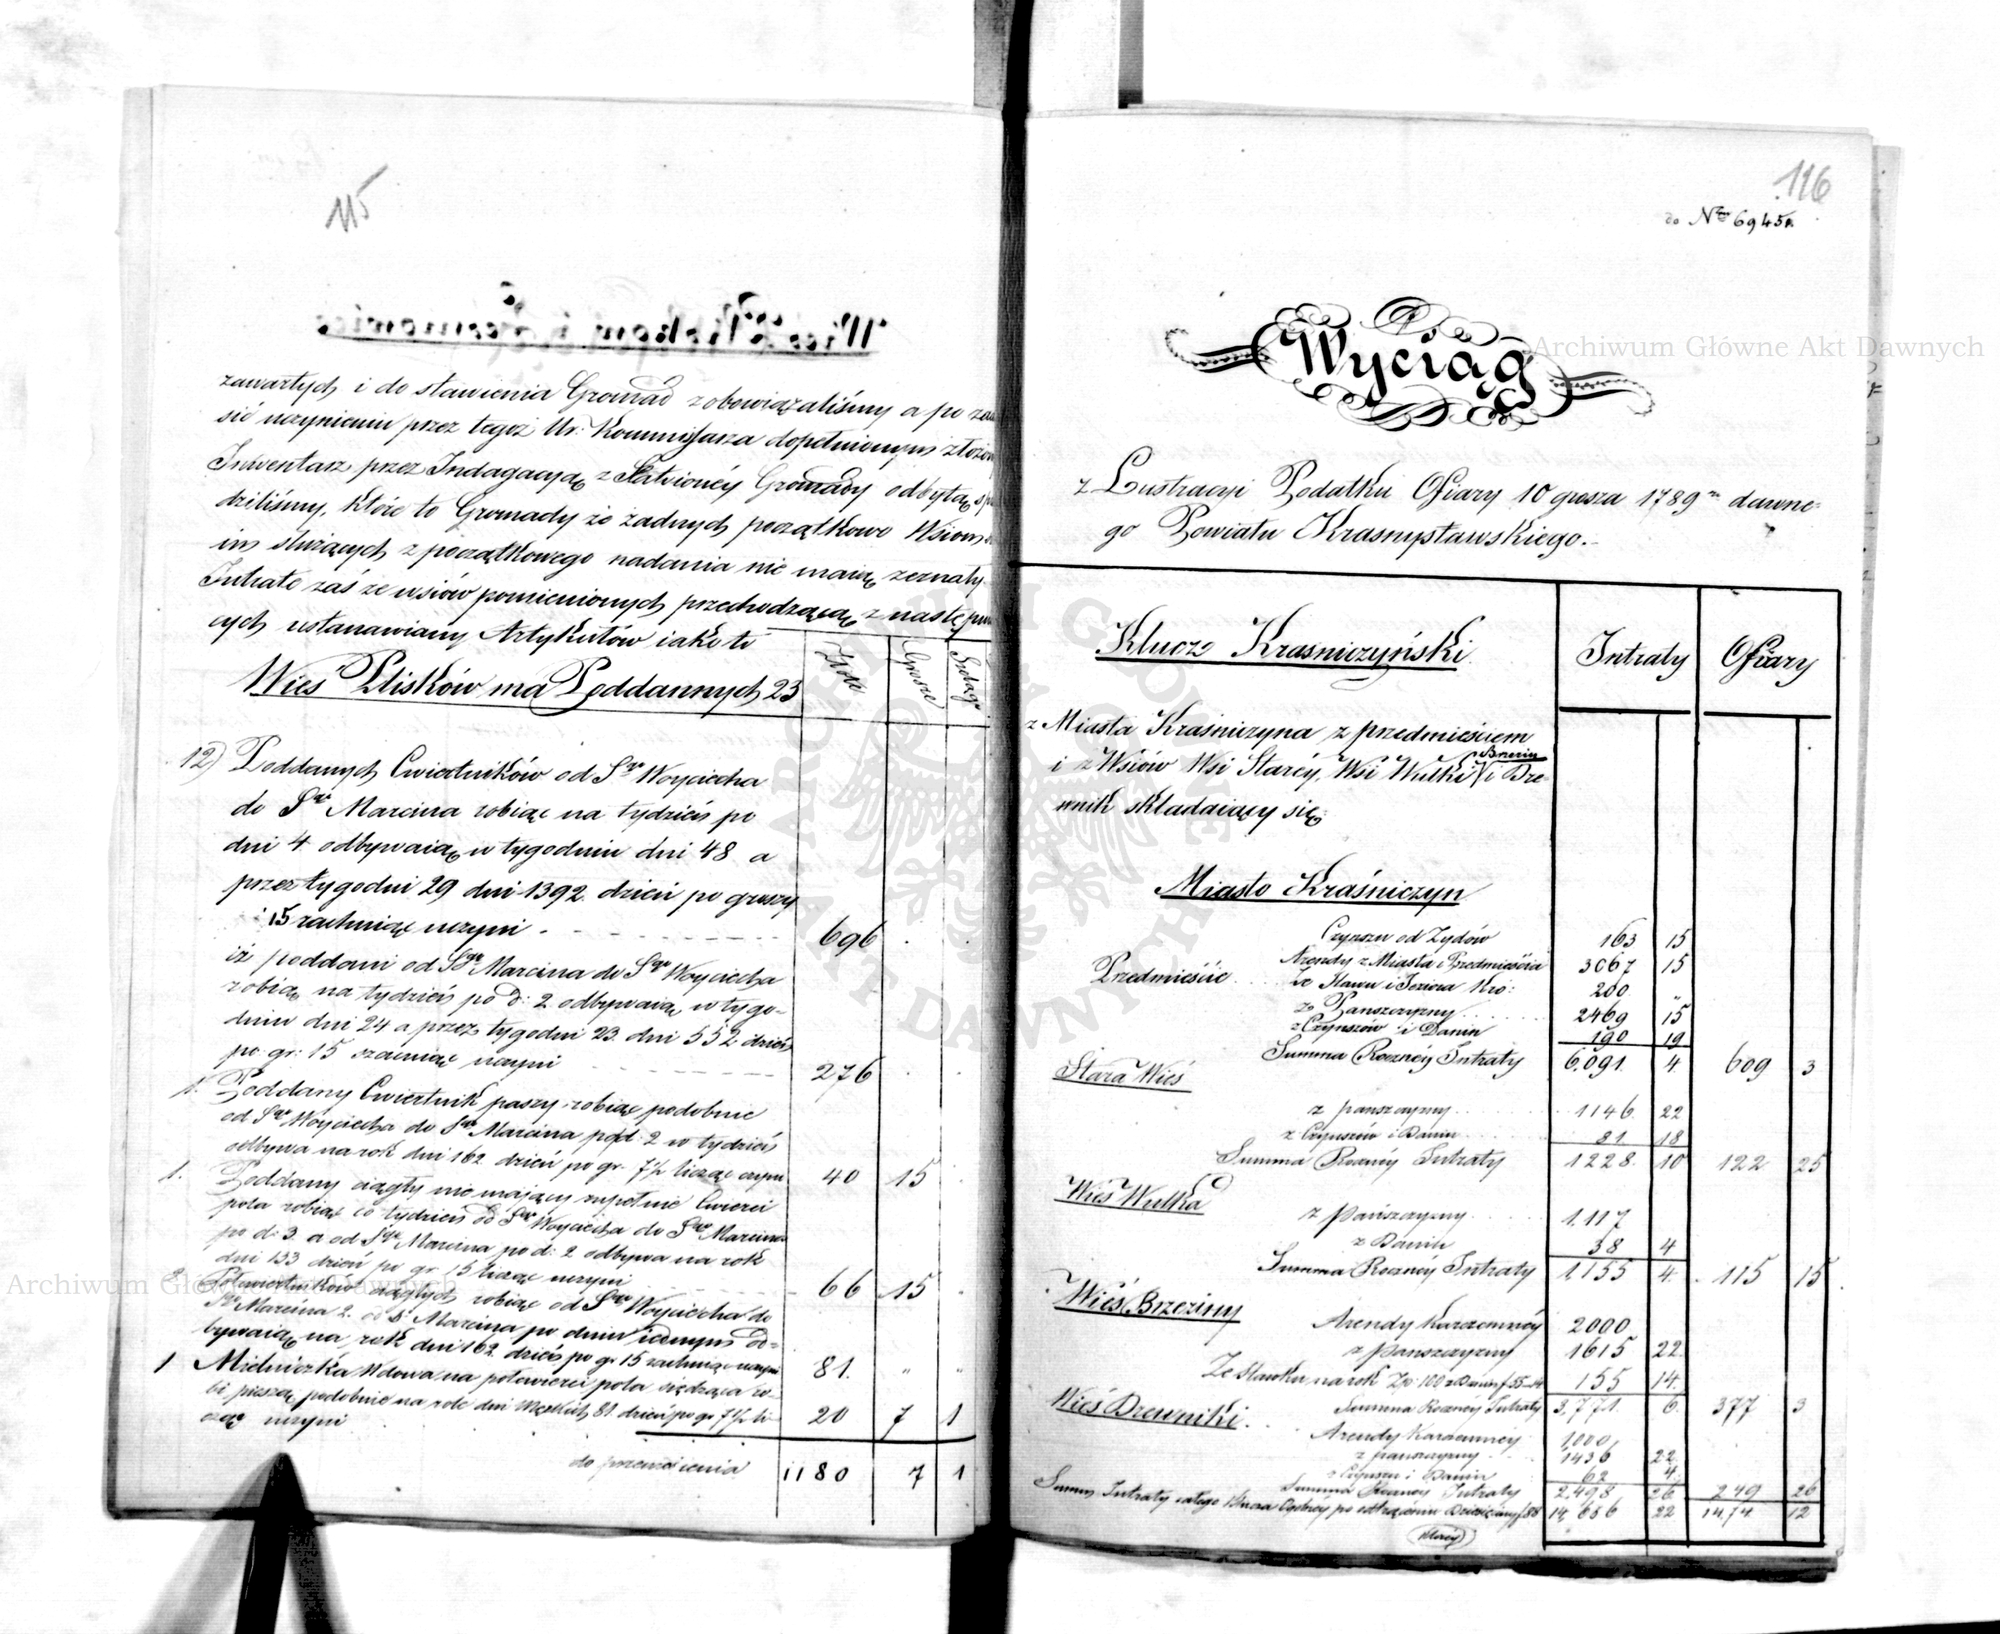 115
zawartych i do stawienia Gromad zobowiązaliśmy a po
się uczynieniu przez tegoż Ur: Kommissarza dopełnionym
Inwentarz przez Indagacyią z Gromady odbytą
dziliśmy, które to Gromady że żadnych początkowo Wsiom
im służących z początkowego nadania nie maią zeznały.
Intratę zaś ze wsiów pomienionych przechodzącą z nastę
cych ustanawiamy Artykułów iako to
Złote Grosze Szeląg
Wieś Pliskow ma Poddannych 23
12) Poddanych Cwiertników od Sgo Woyciecha
do Sgo Marcina robiąc na tydzień po
dni 4 odbywaią w tygodniu dni 48 a
przez tygodni 29 dni 1392. dzień po groszy
15 rachuiąc uczyni - 696
iż poddani od Sgo Marcina do Sgo Woyciecha
robią na tydzień po d: 2 odbywaią w tygo-
dniu dni 24 a przez tygodni 23. dni 552 dzień
po gr: 15 szacuiąc uczyni 276
1. Poddany Cwiertnik pieszy robiąc podobnie
od Sgo Woyciecha do Sgo Marcina po d: 2 w tydzień
odbywa na rok dni 162 dzień po gr. 7½ licząc czyni 40 15
1. Poddany ciągły nie maiący zupełnie Cwierci
pola robiąc co tydzień od Sgo Woyciecha do Sgo Marcina
po d: 3. a od Sgo Marcina po d: 2 odbywa na rok
dni 133 dzień po gr 15 licząc uczyni 66 15
2. Półcwiertników ciągłych robiąc od Sgo Woyciecha do
Sgo Marcina 2. od S. Marcina po dniu iednym od=
bywaią na rok dni 162 dzień po gr 15 rachuiąc uczyni 81. " "
1 Mielniczka Wdowa na półcwierci pola siedząca ro-
bi pieszo podobnie na rok dni Męzkich 81. dzień po gr 7½ li-
cząc uczyni 20 7 1
do przeniesienia 1180 7 1
116
do Nro 6945.
Wyciąg
z Lustracyi Podatku Ofiary 10 grosza 1789 m dawne-
go Powiatu Krasnystawskiego.
Klucz Krasniczyński Intraty Ofiary
z Miasta Kraśniczyna z przedmieściem
i z Wsiów Wsi Staréy, Wsi Wulki i Dre-
wnik składaiący się
Miasto Kraśniczyn
Czynszu od Zydów 163 15
Arendy z Miasta i Przedmieścia 3067 15
Przedmieście Ze Stawu i Jeziora 200 "
z Panszczyzny 2469 15
z Czynszów i Danin 190 19
Summa Rocznéy Intraty 6,091. 4. 609 3
Stara Wieś
z panszczyzny 1146 22
z Czynszów i Danin 81 18
Summa Rocznéy Intraty 1228 10 122 25
Wieś Wulka
z Pańszczyzny 1.117
z Danin 38 4
Summa Rocznéy Intraty 1155 4 115 15
Wieś Brzeziny
Arendy Karczemnéy 2000
z Panszczyzny 1615 22
Ze Stawku na rok Zp: 100 z Danin f 55 14 155 14
Summa Rocznéy Intraty 3,771. 6. 377 3
Wieś Drewniki.
Arendy Karczemnéy 1,000
z panszczyzny 1436 22
z Czynszu i Danin 62 4
Summa Roczney Intraty 2,498 26 249 26
Summa Intraty całego Klucza po odtrąceniu Dziesięciny f 88 14,656 22 1474 12
Archiwum Główne Akt Dawnych
Archiwum Główne Akt Dawnych
ARCHIWUM GŁÓWNE AKT DAWNYCH